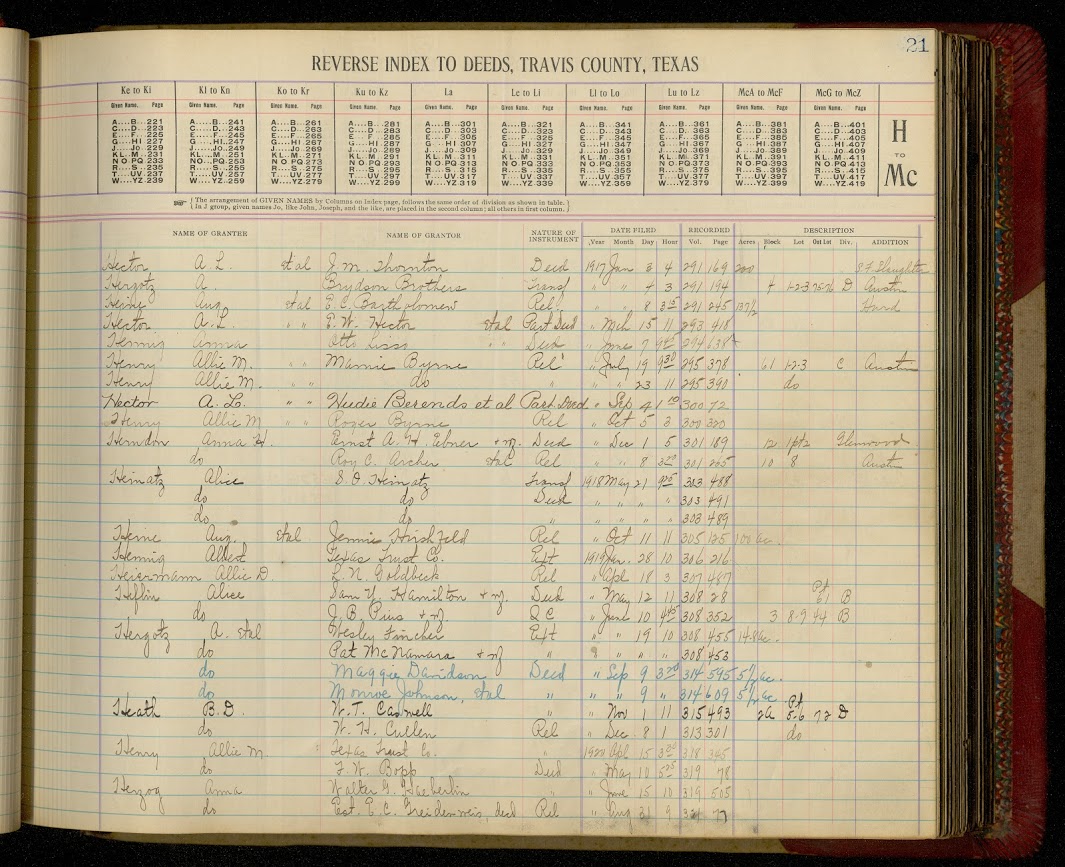 21
REVERSE INDEX TO DEEDS, TRAVIS COUNTY, TEXAS
Ke to Ki Kl to Kn Ko to Kr Ku to Kz La Le to Li Ll to Lo Lu to Lz McA to McF McG to McZ
Given Name. Page Given Name. Page Given Name. Page Given Name. Page Given Name. Page Given Name. Page Given Name. Page Given Name. Page Given Name. Page Given Name. Page
A....B...221 A....B...241 A....B...261 A....B...281 A....B...301 A....B...321 A....B...341 A....B...361 A....B...381 A....B...401
C....D...223 C....D...243 C....D...263 C....D...283 C....D...303 C....D...323 C....D...343 C....D...363 C....D...383 C....D...403
E....F...225 E....F...245 E....F...265 E....F...285 E....F...305 E....F...325 E....F...345 E....F...365 E....F...385 E....F...405
G....HI.227 G....HI.247 G....HI.267 G....HI.287 G....HI.307 G....HI.327 G....HI.347 G....HI.367 G....HI.387 G....HI.407
J....Jo.229 J....Jo.249 J....Jo.269 J....Jo.289 J....Jo.309 J....Jo.329 J....Jo.349 J....Jo.369 J....Jo.389 J....Jo.409
KL..M..231 KL..M..251 KL..M..271 KL..M..291 KL..M..311 KL..M..331 KL..M..351 KL..M..371 KL..M..391 KL..M..411
NO.PQ.233 NO.PQ.253 NO.PQ.273 NO.PQ.293 NO.PQ.313 NO.PQ.333 NO.PQ.353 NO.PQ.373 NO.PQ.393 NO.PQ.413
R....S...235 R....S...255 R....S...275 R....S...295 R....S...315 R....S...335 R....S...355 R....S...375 R....S...395 R....S...415
T....UV.237 T....UV.257 T....UV.277 T....UV.297 T....UV.317 T....UV.337 T....UV.357 T....UV.377 T....UV.397 T....UV.417
W....YZ.239 W....YZ.259 W....YZ.279 W....YZ.299 W....YZ.319 W....YZ.339 W....YZ.359 W....YZ.379 W....YZ.399 W....YZ.419
H TO Mc
The arrangement of GIVEN NAMES by Columns on Index page, follows the same order of division as shown in table.
In J group, given names Jo, like John, Joseph, and the like, are placed in the second column; all others in first column.
NAME OF GRANTEE NAME OF GRANTOR NATURE OF INSTRUMENT DATE FILED RECORDED DESCRIPTION
Year Month Day Hour Vol. Page Acres Block Lot Out Lot Div. ADDITION
Hector A. L. et al J. M. Thornton Deed 1917 Jan 3 4 291 169 200 S. F. Slaughter
Hergotz A. Brydson Brothers Transf " " 4 3 291 194 4 1-2-3 75-76 D Austin
Heine Aug. et al E. C. Bartholomew Rel " " 8 3 15 291 245 137 1/2
Hector A. L. " " E. W. Hector et al Part Deed " Mch 15 11 293 418
Hennig Anna Otto " " Deed " June 7 294 638
Henry Allie M. " " Mamie Byrne Rel " July 19 9 30 295 378 61 1-2-3 C Austin
Henry Allie M. " " do " " " 23 11 295 390 do
Hector A. L. " " Heedie Berends et al Part Deed " Sep 4 1 10 300 72
Henry Allie M " " Roger Byrne Rel " Oct 5 3 300 320
Herndon Anna H. Ernst A. H. Ebner + wf. Deed " Dec 1 5 301 189 12 1pt2 Glenwood
do Roy C. Archer et al Rel " " 8 3 20 301 205 10 8 Austin
Heinatz Alice S. O. Heinatz Transf 1918 May 21 9 25 303 488
do do Deed " " " " 303 491
do do " " " " " 303 489
Heine Aug. et al Jennie Hirshfeld Rel " Oct 11 11 305 125 100 ac.
Hennig Albert Texas Trust Co. Ext 1919 Jan. 28 10 306 216
Heiermann Allie D. L. N. Goldbeck Rel " Apl 18 3 307 467
Heflin Alice Sam V. Hamilton + wf. Deed " May 12 11 308 28 Pt 61 B
do J. B. Pius + wf Q C " June 10 4 45 308 352 3 8-9 44 B
Hergotz A. et al Wesley Fincher Ext " " 19 10 308 455 148 ac.
do Pat McNamara + wf " " " " " 308 453
do Maggie Davidson Deed " Sep 9 3 20 314 595 5 1/2 ac.
do Monroe Johnson, et al " " " 9 " 314 609 5 1/2 ac
Heath B. D. W. T. Caswell " " Nov 1 11 315 493 2a Pt 5-6 72 D
do W. H. Cullen Rel " Dec. 8 1 313 301 do
Henry Allie M. Texas Trust Co. " 1920 Apl 15 3 20 318 365
do F. W. Bopp Deed " May 10 5 25 319 78
Herzog Anna Walter G. Haeberlin " " June 15 10 319 505
do Est. E. C. decd Rel " Aug 31 9 321 77